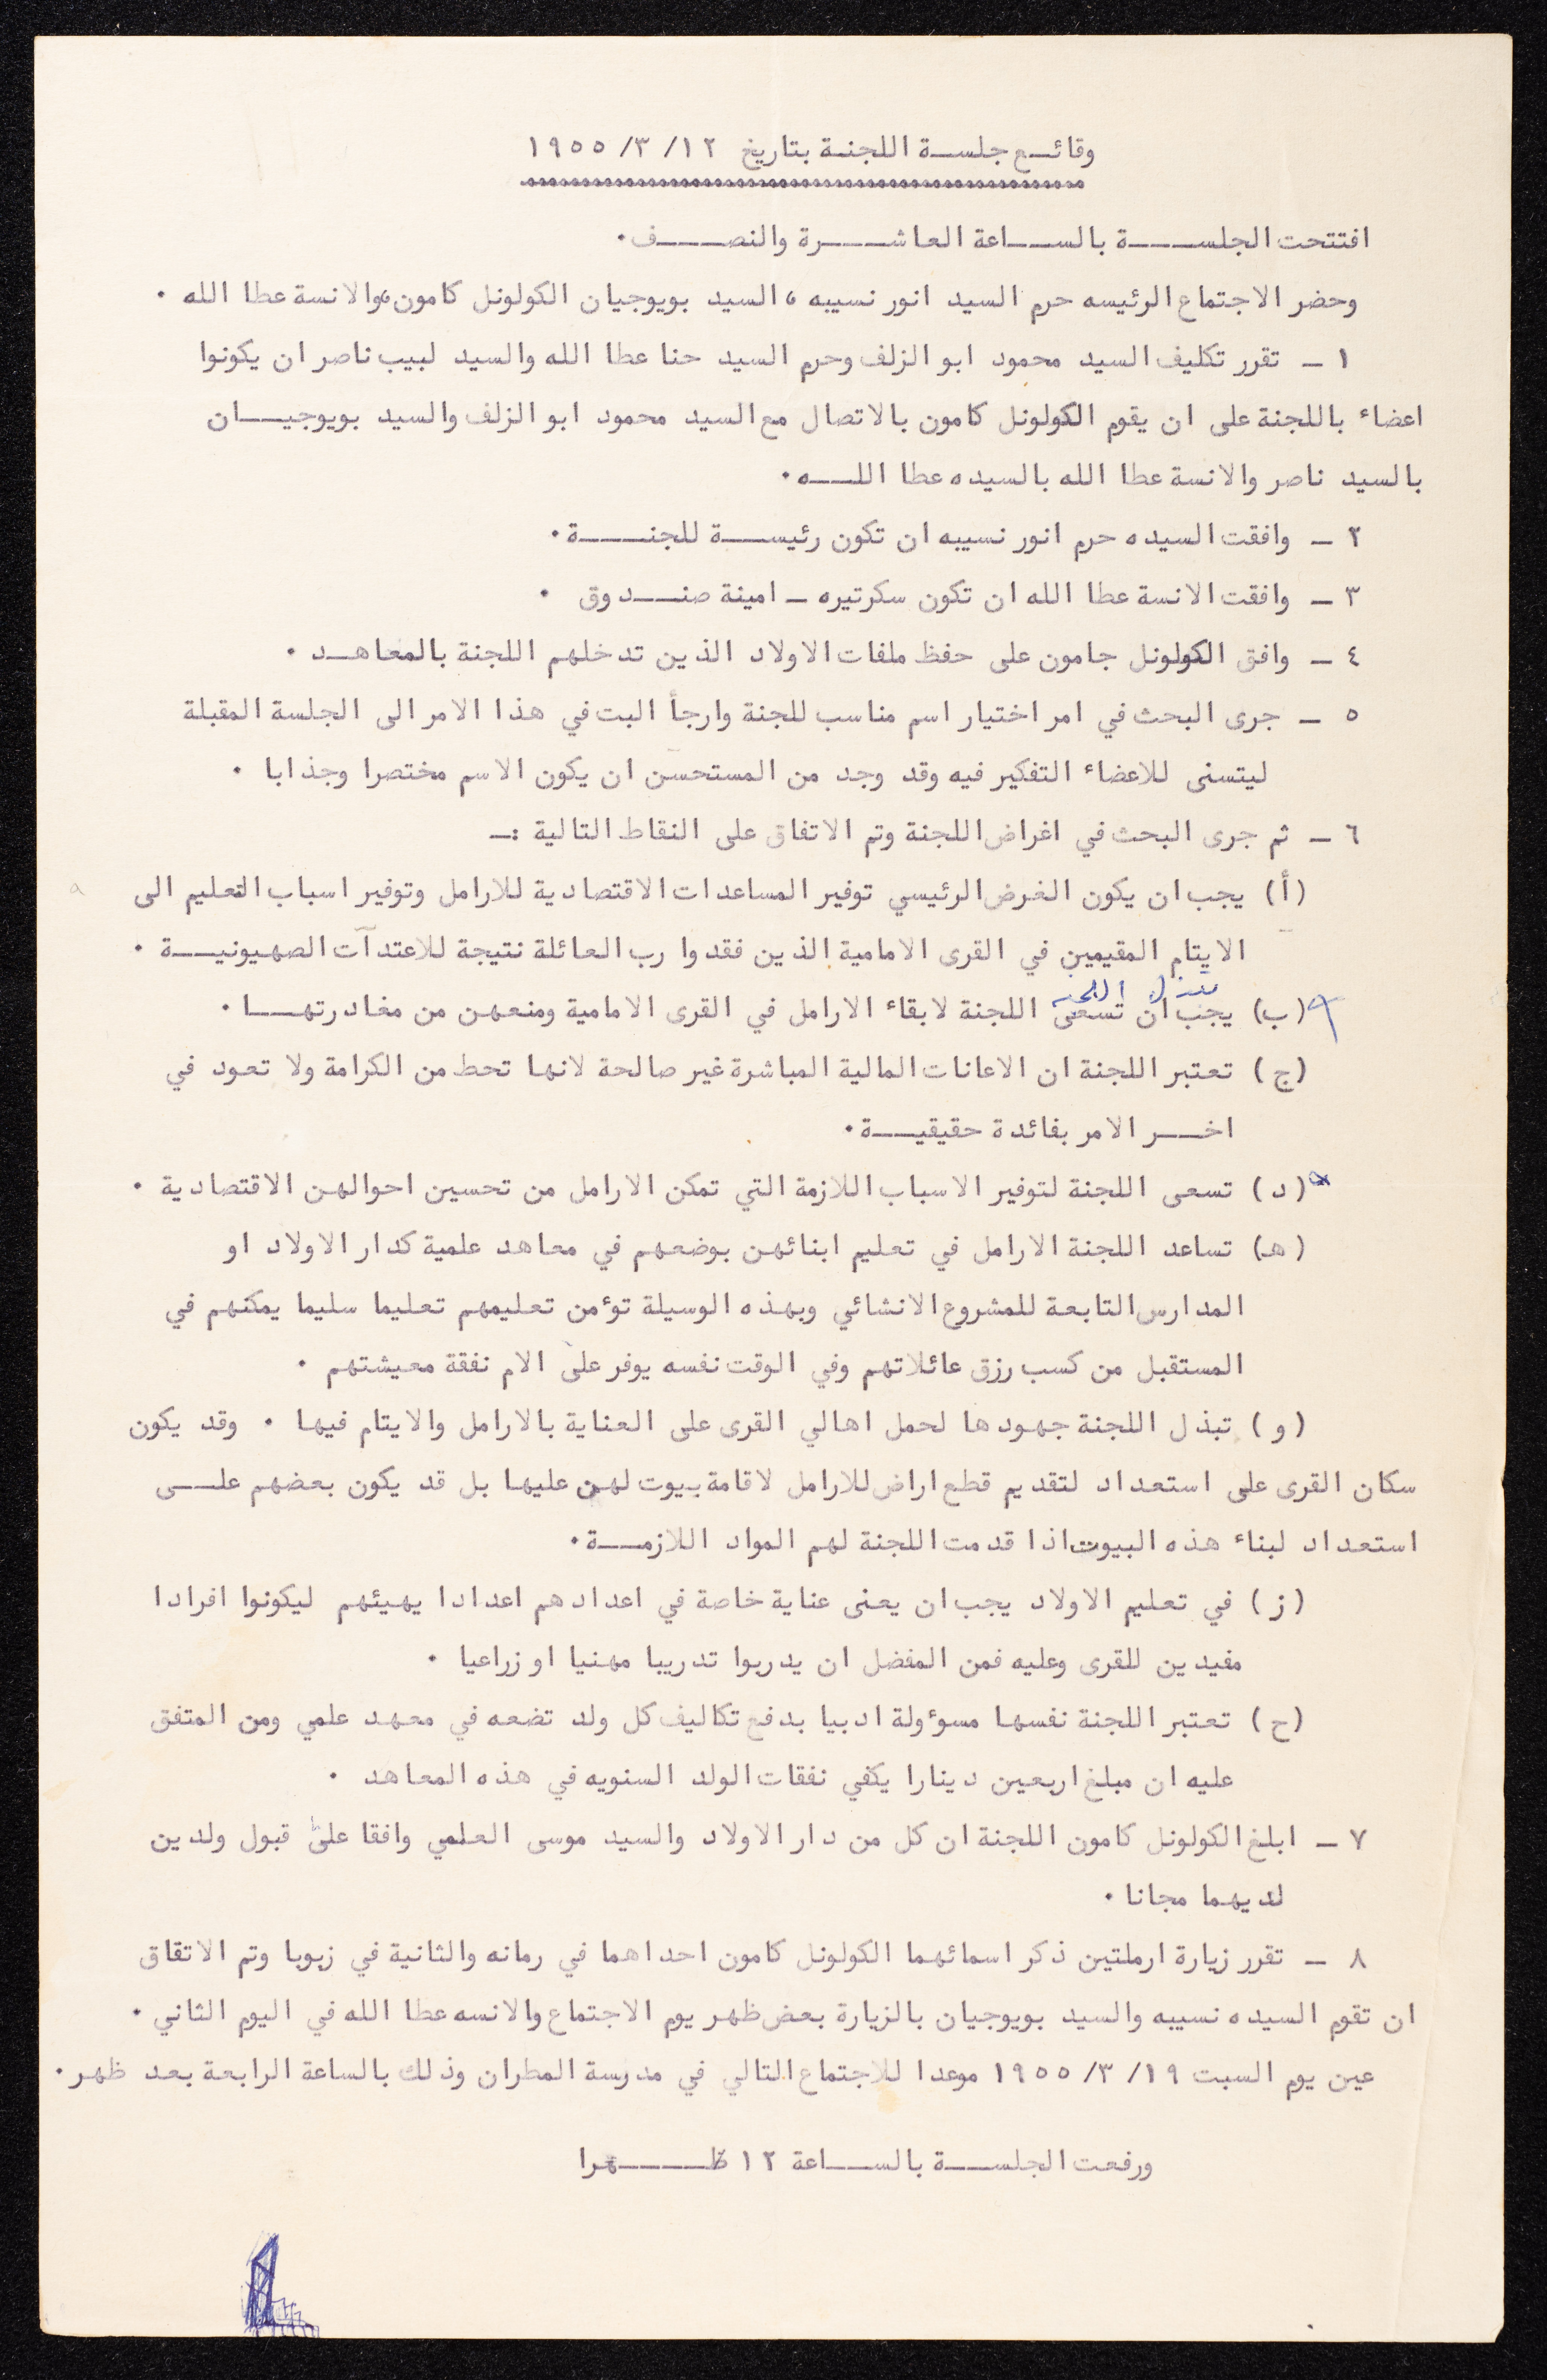 وقائع جلسة اللجنة بتاريخ ١٢/ ٣/ ١٩٥٥
افتتحت الجلسة بالساعة العاشرة والنصف.
وحضر الاجتماع الرئيسه حرم السيد انور نسيبه ، السيد بويوجيان الكولونل كامون،والانسة عطا الله .
١ - تقرر تكليف السيد محمود ابو الزلف وحرم السيد حنا عطا الله والسيد لبيب ناصر ان يكونوا
اعضاء باللجنة على ان يقوم الكولونل كامون بالاتصال مع السيد محمود ابو الزلف والسيد بويوجيان
بالسيد ناصر والانسة عطا الله بالسيده عطا الله.
٢ - وافقت السيده حرم انور نسيبه ان تكون رئيسة للجنة.
٣ - وافقت الانسة عطا الله ان تكون سكرتيره - امينة صندوق .
٤ - وافق الكولونل جامون على حفظ ملفات الاولاد الذين تدخلهم اللجنة بالمعاهد .
٥ - جرى البحث في امر اختيار اسم مناسب للجنة وارجأ البت في هذا الامر الى الجلسة المقبلة
ليتسنى للاعضاء التفكير فيه وقد وجد من المستحسن ان يكون الاسم مختصرا وجذابا .
٦ - ثم جرى البحث في اغراض اللجنة وتم الاتفاق على النقاط التالية :-
(أ) يجب ان يكون الغرض الرئيسي توفير المساعدات الاقتصادية للارامل وتوفير اسباب التعليم الى
الايتام المقيمين في القرى الامامية الذين فقدوا رب العائلة نتيجة للاعتدآت الصهيونية .
اللجنه
(ب) يجب ان تسعى اللجنة لابقاء الارامل في القرى الامامية ومنعهن من مغادرتها .
(ج) تعتبر اللجنة ان الاعانات المالية المباشرة غير صالحة لانها تحط من الكرامة ولا تعود في
اخر الامر بفائدة حقيقية.
(د) تسعى اللجنة لتوفير الاسباب اللازمة التي تمكن الارامل من تحسين احوالهن الاقتصادية .
(هـ) تساعد اللجنة الارامل في تعليم ابنائهن بوضعهم في معاهد علمية كدار الاولاد او
المدارس التابعة للمشروع الانشائي وبهذه الوسيلة توٴمن تعليمهم تعليما سليما يمكنهم في
المستقبل من كسب رزق عائلاتهم وفي الوقت نفسه يوفر على الام نفقة معيشتهم .
(و) تبذل اللجنة جهودها لحمل اهالي القرى على العناية بالارامل والايتام فيها . وقد يكون
سكان القرى على استعداد لتقديم قطع اراض للارامل لاقامة بيوت لهن عليها بل قد يكون بعضهم على
استعداد لبناء هذه البيوت اذا قدمت اللجنة لهم المواد اللازمة.
(ز) في تعليم الاولاد يجب ان يعنى عناية خاصة في اعدادهم اعدادا يهيئهم ليكونوا افرادا
مفيدين للقرى وعليه فمن المفضل ان يدربوا تدريبا مهنيا او زراعيا .
(ح) تعتبر اللجنة نفسها مسوٴولة ادبيا بدفع تكاليف كل ولد تضعه في معهد علمي ومن المتفق
عليه ان مبلغ اربعين دينارا يكفي نفقات الولد السنويه في هذه المعاهد .
٧ - ابلغ الكولونل كامون اللجنة ان كل من دار الاولاد والسيد موسى العلمي وافقا على قبول ولدين
لديهما مجانا .
٨ - تقرر زيارة ارملتين ذكر اسمائهما الكولونل كامون احداهما في رمانه والثانية في زبوبا وتم الاتفاق
ان تقوم السيده نسيبه والسيد بويوجيان بالزيارة بعض ظهر يوم الاجتماع والانسه عطا الله في اليوم الثاني .
عين يوم السبت ١٩/ ٣/ ١٩٥٥ موعدا للاجتماع التالي في مدرسة المطران وذلك بالساعة الرابعة بعد ظهر.
ورفعت الجلسة بالساعة ١٢ ظهرا